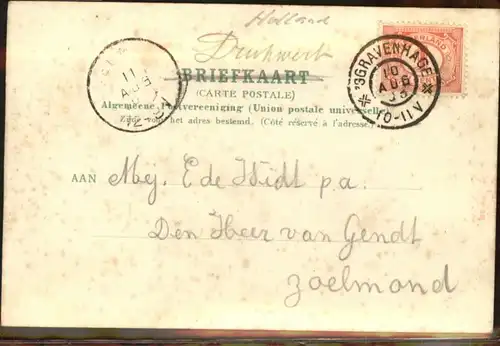 Holland
Drukwerk
BRIEFKAART
(CARTE POSTALE)
Algemeene Postvereeniging (Union postale universelle)
Zijde voor het adres bestemd. (Côté réservé à l'adresse.)
'SGRAVENHAGE
10
AUG
10-11V
11
AUG
AAN Mej. E de Widt p.a.
Den Heer van Gendt
Zoelmond